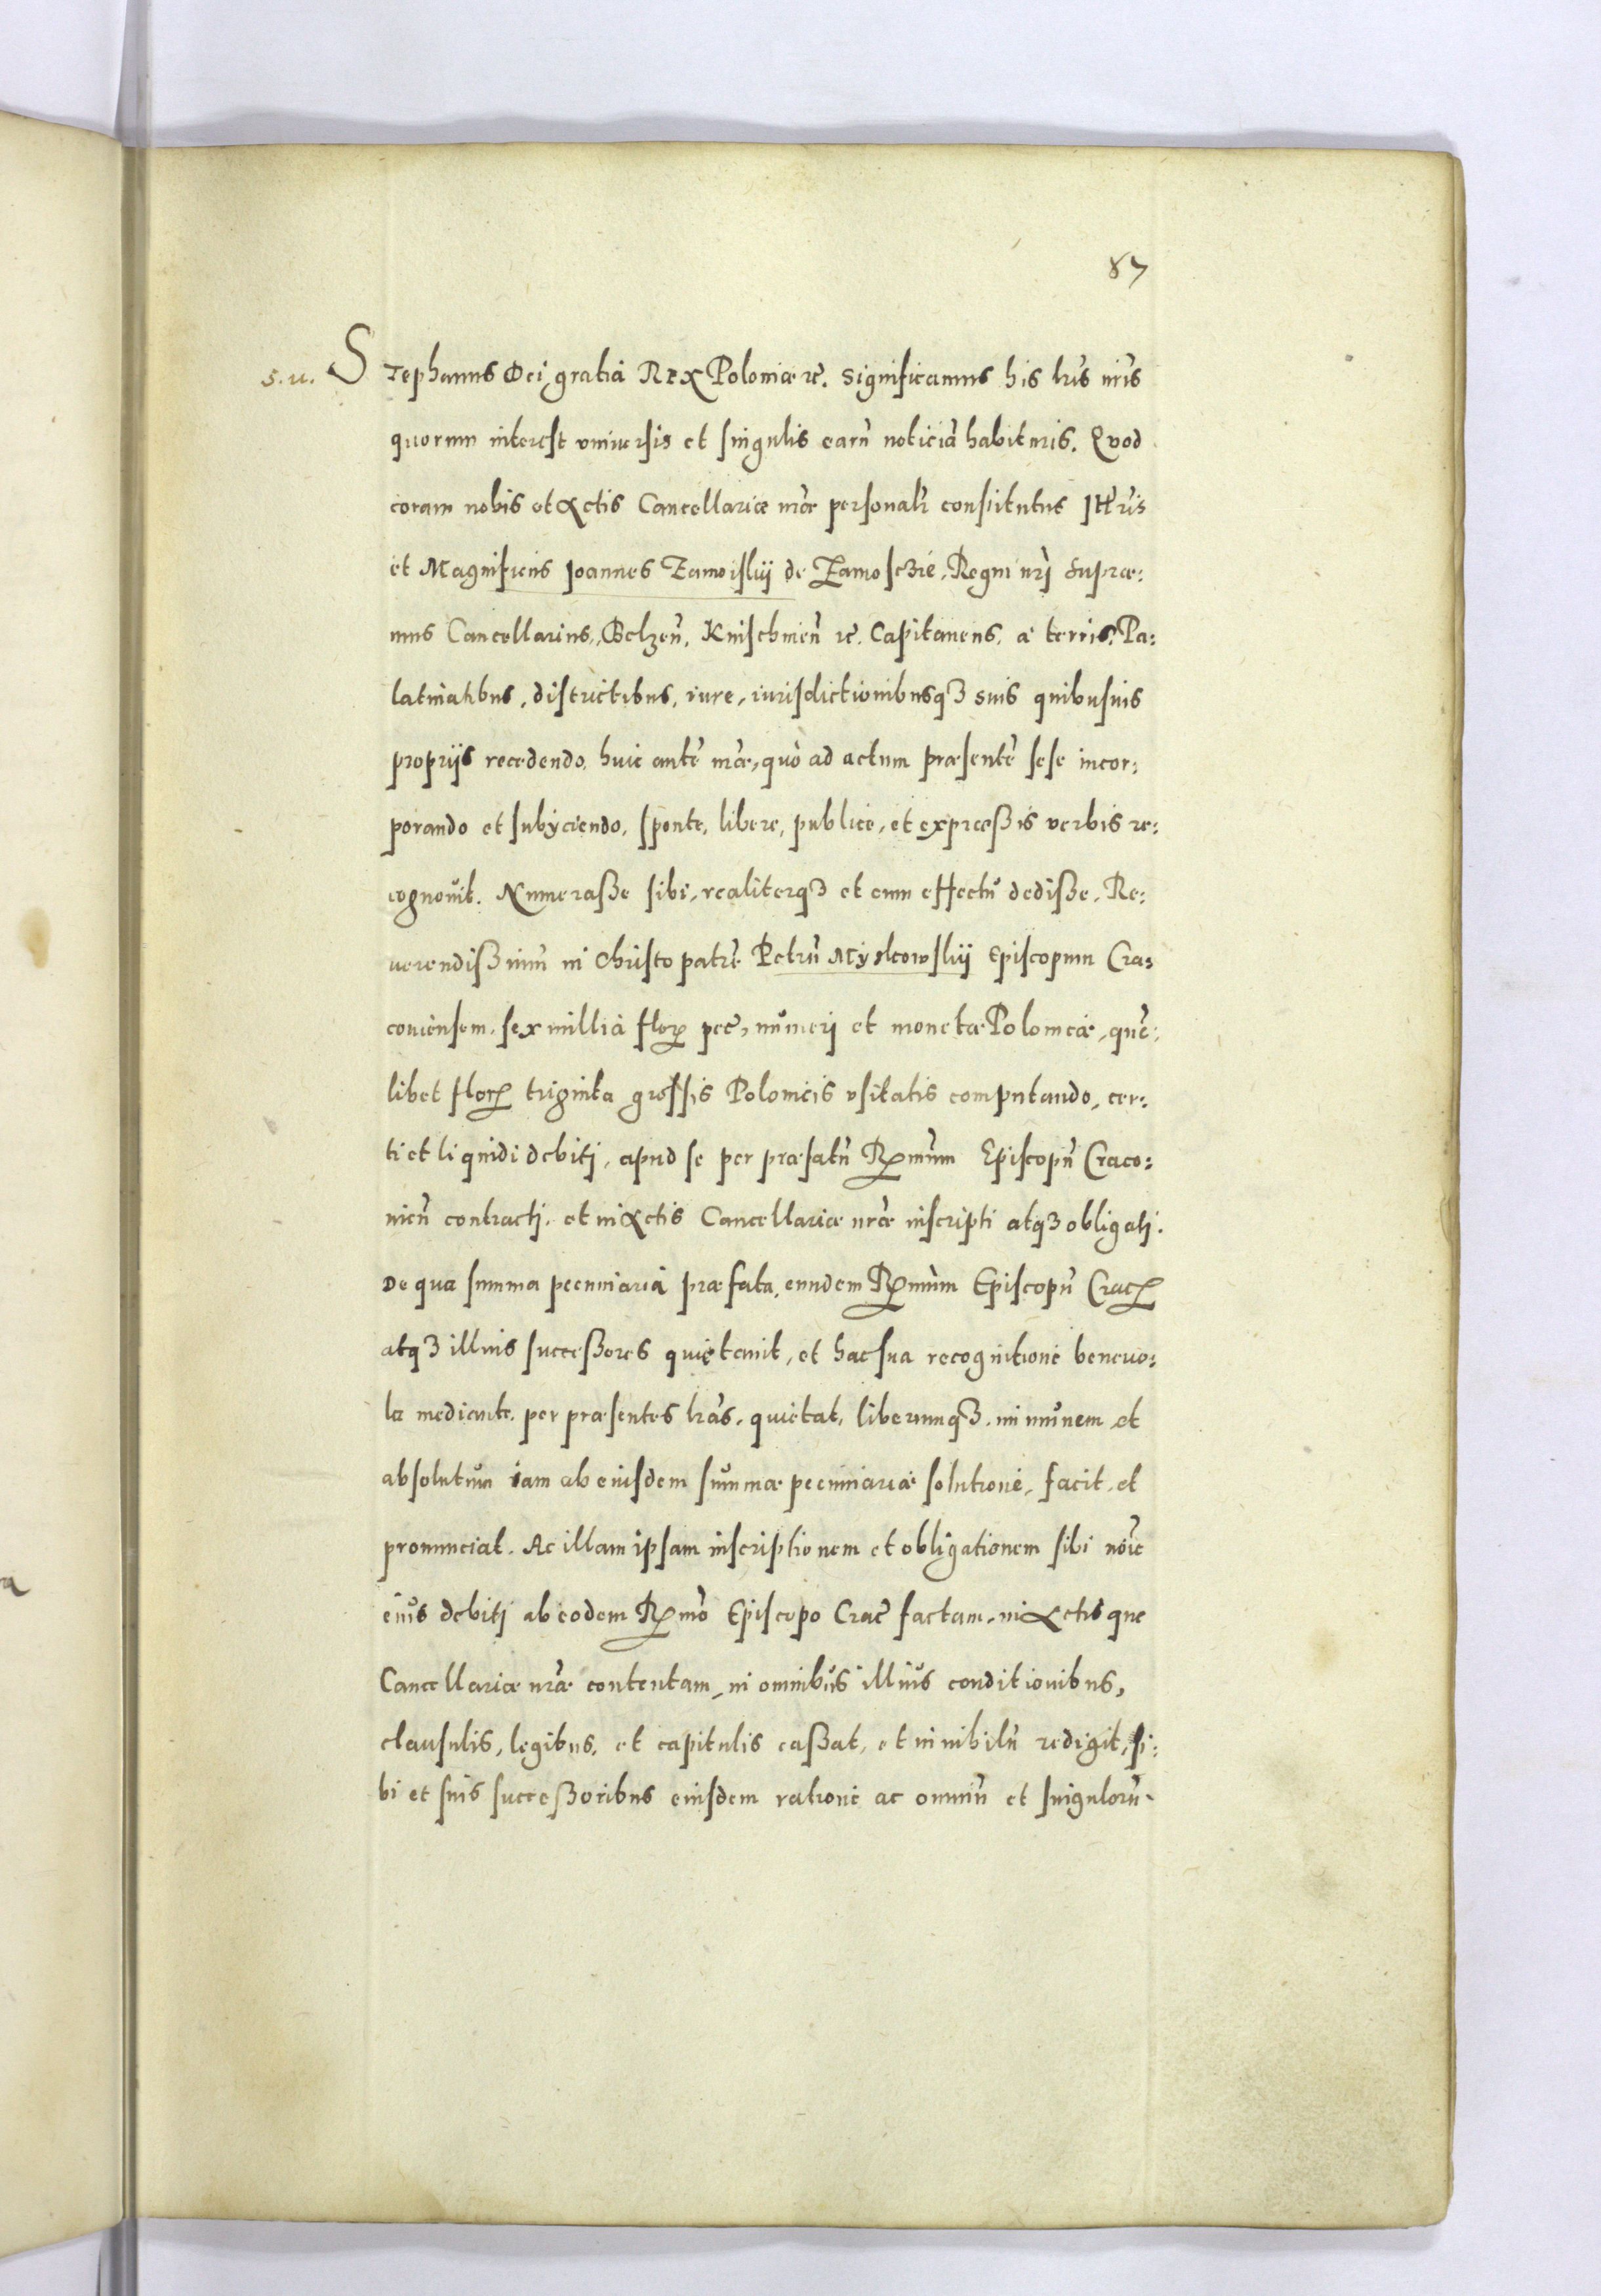 87
s. u. Stephanus Dei gratia Rex Poloniæ &c. Significamus his lr̃is nr̃is
quorum interest vniuersis et singulis earũ noticiã habituris. Quod
coram nobis et Actis Cancellariæ nr̃æ personalr̃ constitutus Illr̃is
et Magnificus Joannes Zamoiskij de Zamosczie, Regni nr̃i Supræ:
mus Cancellarius, Belzeñ. Knischineñ &c. Capitaneus, a terris, Pa:
latinatibus, districtibus, iure, iurisdictionibusq3 suis quibusuis
proprijs recedendo, huic autẽ nr̃æ, quò ad actum præsentẽ sese incor:
porando et subyciendo, sponte, libere, publice, et expræssis verbis re:
cognouit. Numerasse sibi, realiterq3 et cum effectu dedisse, Re:
uerendissimũ in Christo patrẽ Petrũ Myskowskij Episcopum Cra:
couiensem, sex millia flor pec̃, numeri et monetæ Polonicæ, quẽ:
libet flor triginta grossis Polonicis vsitatis computando, cer:
ti et liquidi debiti, apud se per præfatũ Rmũm Episcopũ Craco:
uieñ contracti, et in Actis Cancellariæ nr̃æ inscripti atq3 obligati.
De qua summa pecuniaria præfata, eundem Rmũm Episcopũ Crac
atq3 illius successores quietauit, et hac sua recognitione beneuo:
la mediante, per præsentes lr̃as, quietat, liberumq3, immunem et
absolutum iam ab eiusdem summæ pecuniariæ solutione, facit, et
pronunciat. Ac illam ipsam inscriptionem et obligationem sibi noĩe
eius debiti ab eodem Rmõ Episcopo Crac̃ factam, in Actisque
Cancellariæ nr̃æ contentam, in omnibus illius conditionibus,
clausulis, legibus, et capitulis cassat, et in nihilũ redigit, si:
bi et suis successoribus eiusdem ratione ac omniũ et singulorũ